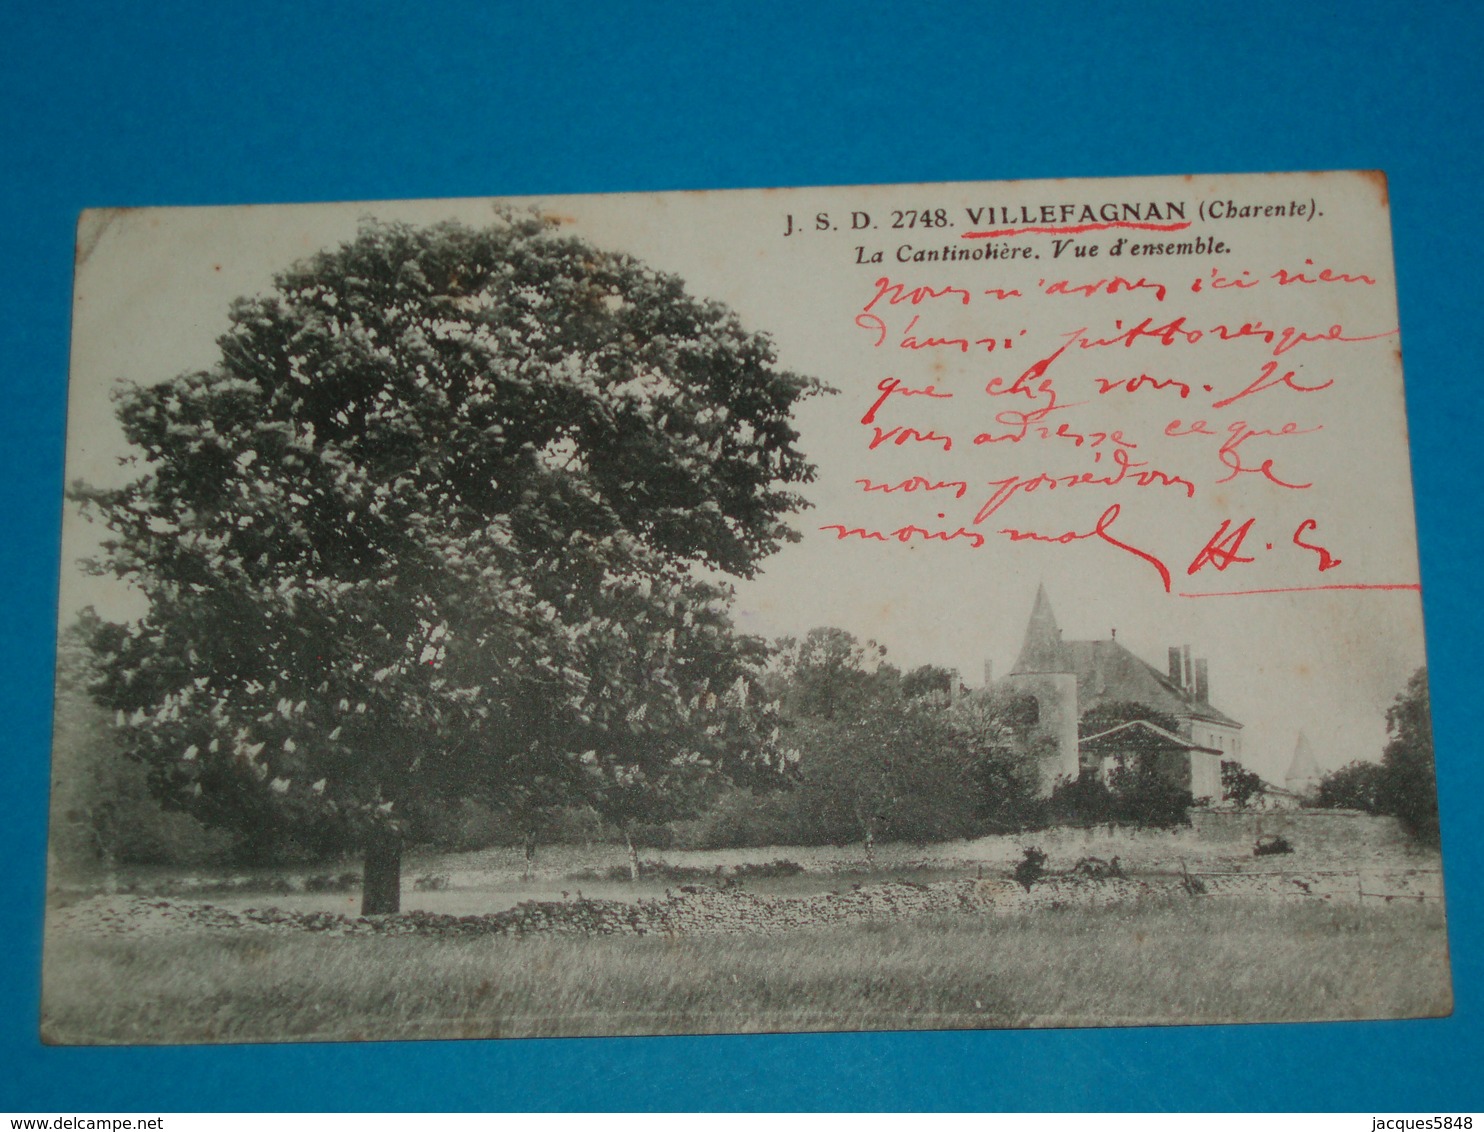 J. S. D. 2748. VILLEFAGNAN (Charente).
La Cantinolière. Vue d'ensemble.
nous n'avons ici rien
d'aussi pittoresque
que chez vous. Je
vous adresse ce que
nous possédons de
moins mal H. G
jacques5848